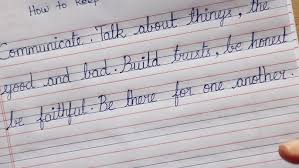 How to Keep
Communicate. Talk about things, the
good and bad. Build trusts, be honest
be faithful. Be there for one another.